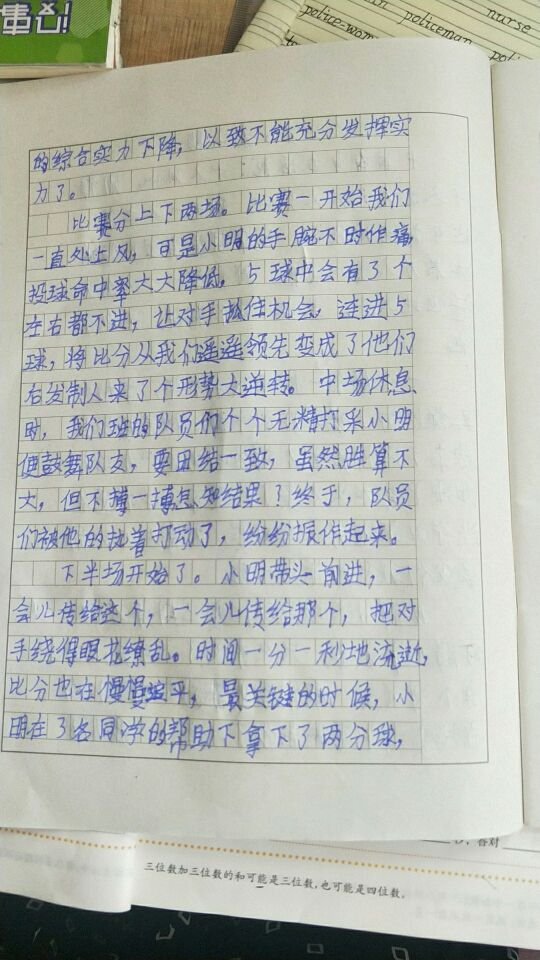 事心!
nurse
in policeman po
police-wom
的综合实力下降，以致不能充分发挥实
力了。
比赛分上下两场。比赛一开始我们
一直处上风，可是小明的手腕不时作痛，
投球命中率大大降低。5球中会有了个
左右都不进，让对手抓住机会，连进5
球，将比分从我们遥遥领先变成了他们
后发制人来了个形势大逆转。中场休息
时，我们班的队员们个个无精打采小明
便鼓舞队友，要团结一致，虽然胜算不
大，但不搏一搏怎知结果？终于，队员
们被他的执着打动了，纷纷振作起来。
下半场开始了。小明带头前进，一
会儿传给这个，一会儿传给那个，把对
手绕得眼花缭乱。时间一分一秒地流逝，
比分也在慢慢 平，最关键的时候，小
明在3名同学的帮助下拿下了两分球，
答对
三位数加三位数的和可能是三位数，也可能是四位数。